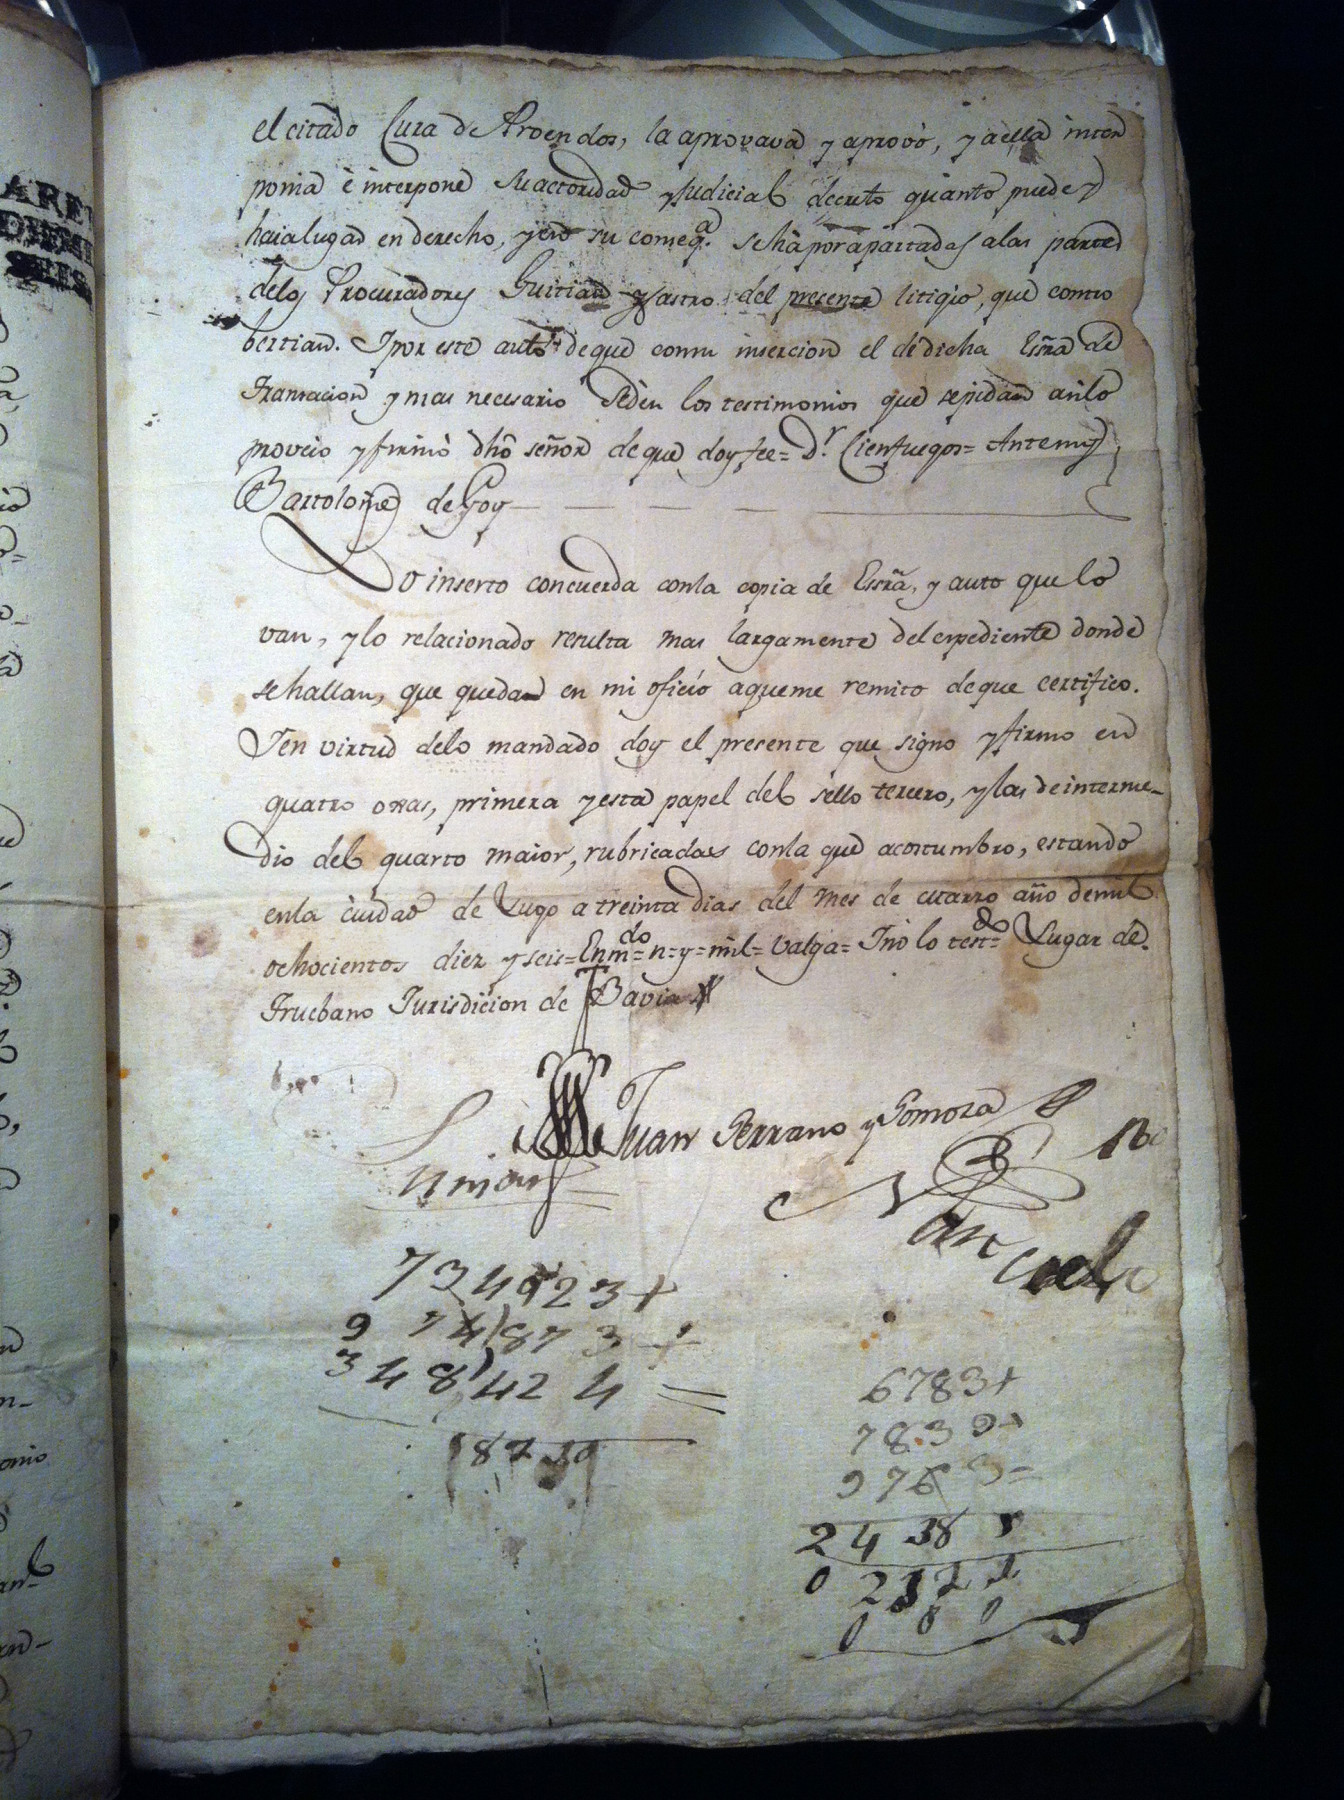 el citado Cura de Aroendos, la aprovava y aprovó, y a ella inter
ponia é interpone su actoridad y judicial decreto quanto puede y
haia lugar en derecho, y en su conseq.ª se há por apartadas a las partes
delos Procuradores Guitian y Castro del presente litigio, que contro
bertian. I por este auto de que conm insercion el de dicha Essrã de
Transacion y mas necesario se dén los testimonios que se pidan asi lo
proveio y firmó dhõ señor de que doy fee = D.r Cienfuegos = Antemy
Bartolome de Goy
Lo inserto concuerda con la copia de Essrã, y auto que lo
van, y lo relacionado resulta mas largamente del expediente donde
se hallan, que quedan en mi oficio a que me remito de que certifico.
I en virtud delo mandado doy el presente que signo y firmo en
quatro oxas, primera y esta papel del sello tercero, y las de interme-
dio del quarto maior, rubricadas con la que acostumbro, estando
en la ciudad de Lugo a treinta dias del mes de marzo año de mil
ochocientos diez y seis = Enm.do = n = y = mil = valga = Tnõ lo test.do = Lugar de
Truebano Jurisdicion de Bavia
Juan Serrano y Somoza
734923+
9 74873 +
348424 =
18720
6783+
7839+
9763=
2438
0 2
0 0 0